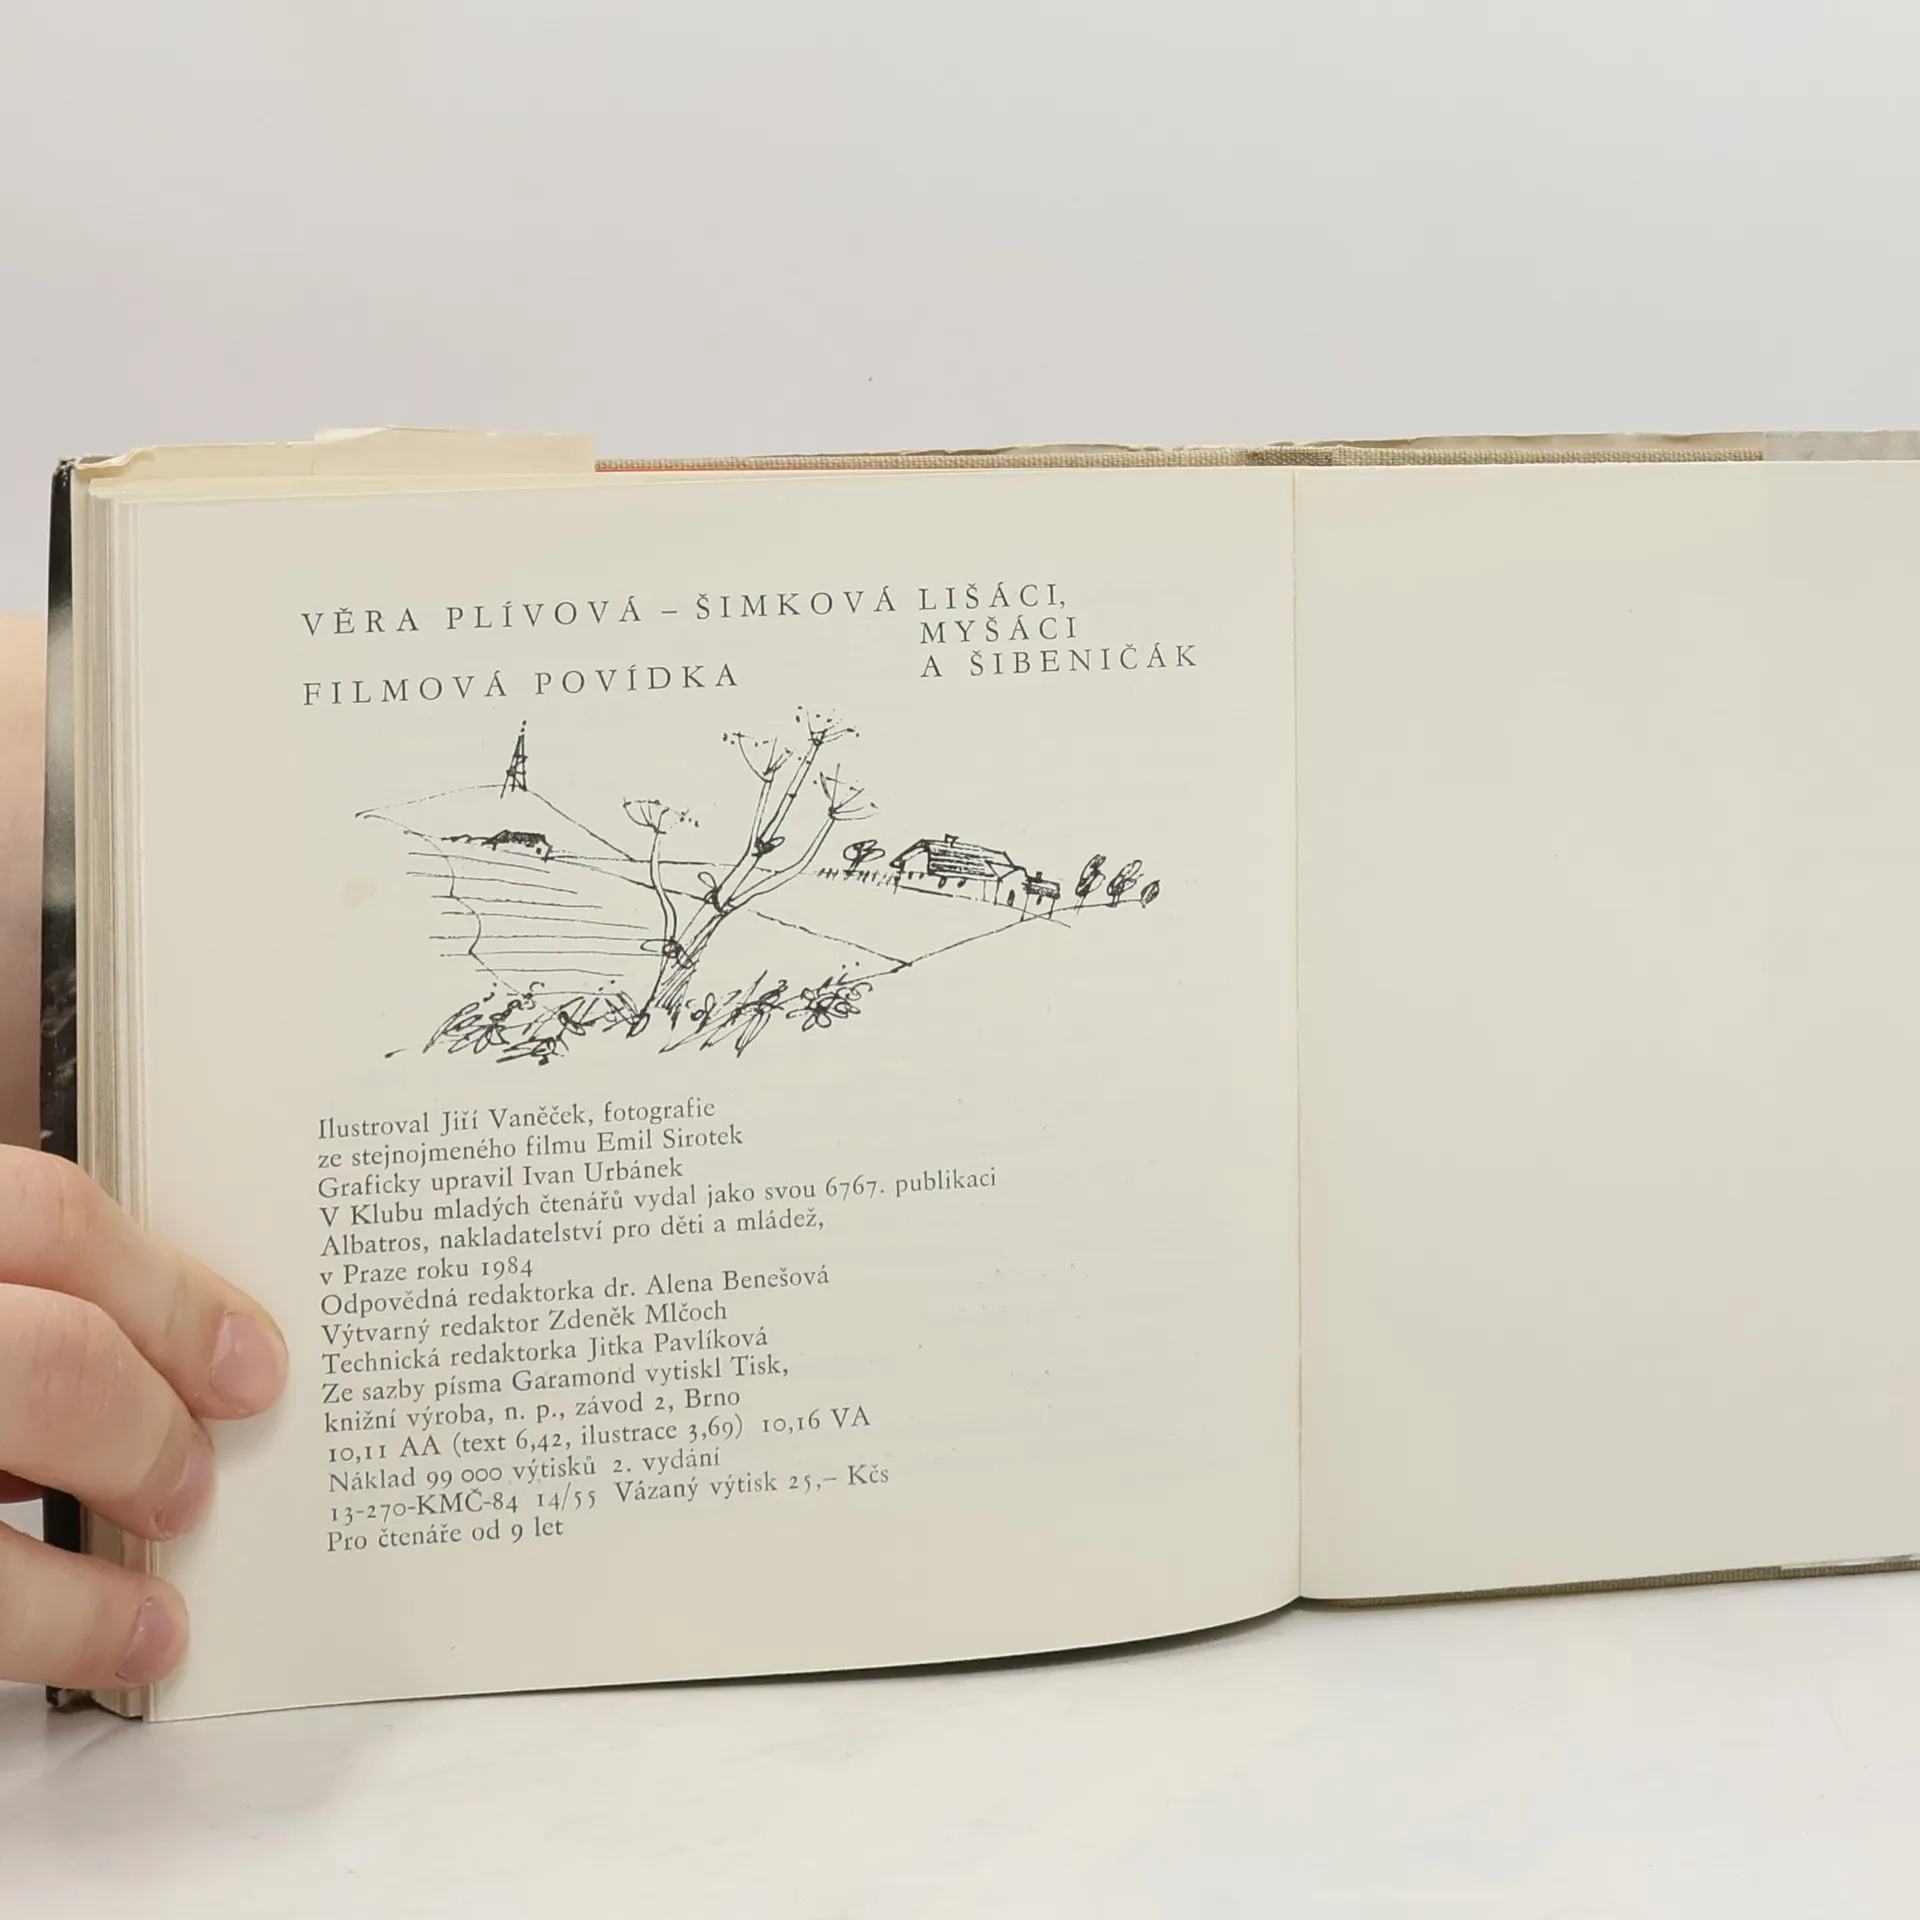 VĚRA PLÍVOVÁ – ŠIMKOVÁ
LIŠÁCI,
MYŠÁCI
A ŠIBENIČÁK
FILMOVÁ POVÍDKA
Ilustroval Jiří Vaněček, fotografie
ze stejnojmeného filmu Emil Sirotek
Graficky upravil Ivan Urbánek
V Klubu mladých čtenářů vydal jako svou 6767. publikaci
Albatros, nakladatelství pro děti a mládež,
v Praze roku 1984
Odpovědná redaktorka dr. Alena Benešová
Výtvarný redaktor Zdeněk Mlčoch
Technická redaktorka Jitka Pavlíková
Ze sazby písma Garamond vytiskl Tisk,
knižní výroba, n. p., závod 2, Brno
10,11 AA (text 6,42, ilustrace 3,69) 10,16 VA
Náklad 99 000 výtisků 2. vydání
13-270-KMČ-84 14/55 Vázaný výtisk 25,– Kčs
Pro čtenáře od 9 let